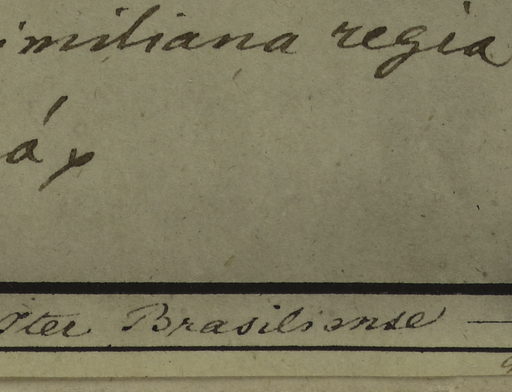 imiliana regia
á
Iter Brasiliense —